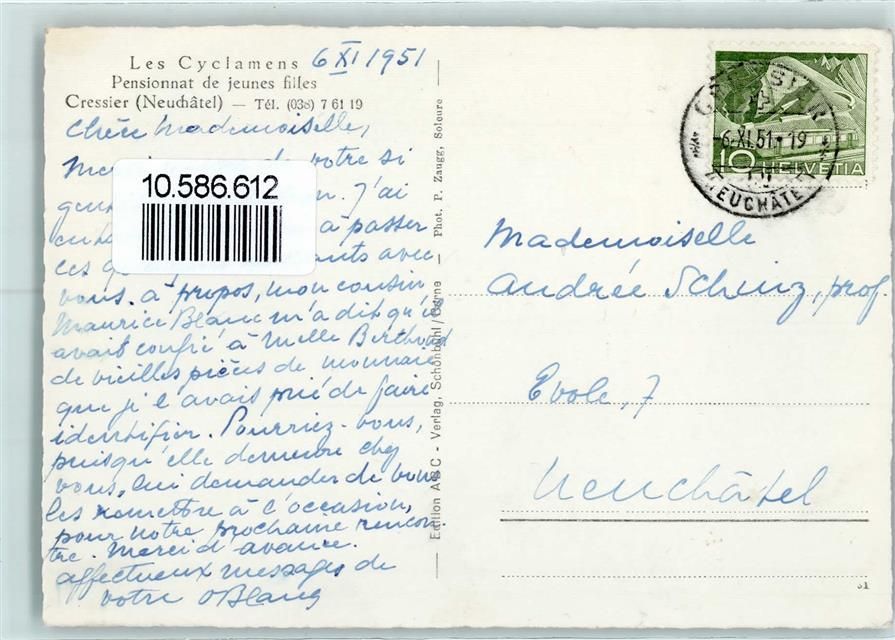 Les Cyclamens
Pensionnat de jeunes filles
Cressier (Neuchâtel) — Tél. (038) 7 61 19
6 XI 1951
Chère Mademoiselle,
votre si
J'ai
à passer
ces avec
vous. à propos, mon cousin
Maurice Blanc m'a dit qu'il
avait confié à Melle Berthoud
de vieilles pièces de monnaie
que je l'avais prié de faire
identifier. Pourriez-vous,
puisqu'elle demeure chez
vous, lui demander de vous
les remettre à l'occasion,
pour notre prochaine rencon-
tre. Merci d'avance.
affectueux messages de
votre OBlanc
10.586.612
Edition ABC - Verlag, Schönbühl/Berne — Phot. P. Zaugg, Soleure
-6.XI.51.-19
(NEUCHÂTEL)
10 HELVETIA
Mademoiselle
Andrée Schinz, prof
Evole, 7
Neuchâtel
51